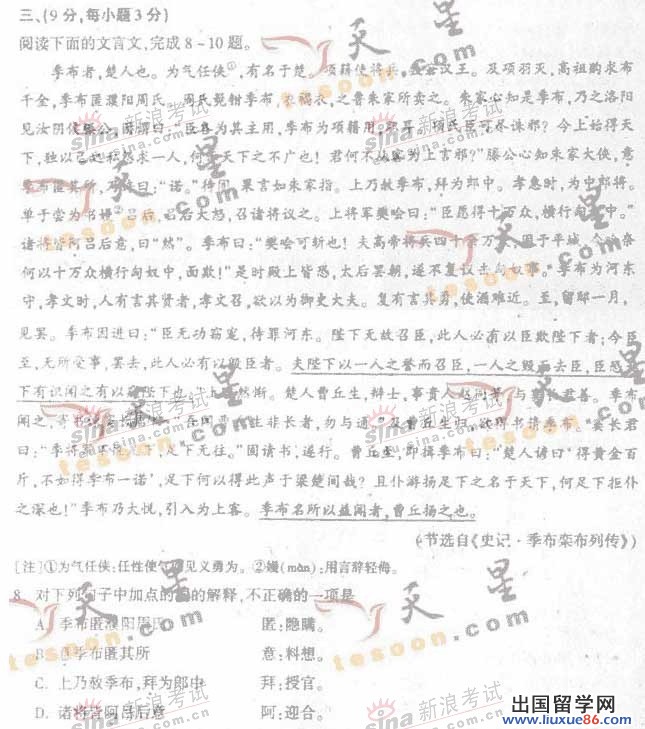 三、(9分,每小题3分)
阅读下面的文言文,完成8~10题。
季布者,楚人也。为气任侠①,有名于楚。项籍使将兵,汉王。及项羽灭,高祖购求布
千金,季布匿濮阳周氏。周氏髡钳季布,衣褐衣,之鲁朱家所卖之。朱家心知是季布,乃之洛阳
见汝阴侯滕公,因谓曰:“臣各为其主用,季布为项籍用,耳。项氏臣可尽诛邪?今上始得天
下,独以己之私怨求一人,何天下之不广也!君何不从容为上言邪?”滕公心知朱家大侠,意
季布匿其所,曰:“诺。”待间,果言如朱家指。上乃赦季布,拜为郎中。孝惠时,为中郎将。
单于尝为书嫚②吕后,吕后大怒,召诸将议之。上将军樊哙曰:“臣愿得十万众,横行匈奴中。”
诸将皆阿吕后意,曰“然”。季布曰:“樊哙可斩也!夫高帝将兵四十余万,困于平城,今哙奈
何以十万众横行匈奴中,面欺!”是时殿上皆恐,太后罢朝,遂不复议击匈奴事。季布为河东
守,孝文时,人有言其贤者,孝文召,欲以为御史大夫。复有言其勇,使酒难近。至,留邸一月,
见罢。季布因进曰:“臣无功窃宠,待罪河东。陛下无故召臣,此人必有以臣欺陛下者;今臣
至,无所受事,罢去,此人必有以毁臣者。夫陛下以一人之誉而召臣,一人之毁而去臣,臣恐
下有识闻之有以陛下也。”然惭。楚人曹丘生,辩士,事贵人赵同等,与长君善。季布
闻之,寄书生非长者,勿与通。”及曹丘生归,欲得书请季布。窦长君
曰:“季将军下,足下无往。”固请书,遂行。曹丘生,即揖季布曰:“楚人谚曰‘得黄金百
斤,不如得季布一诺’,足下何以得此声于梁楚间哉?且仆游扬足下之名于天下,何足下拒仆
之深也!”季布乃大悦,引入为上客。季布名所以益闻者,曹丘扬之也。
(节选自《史记·季布栾布列传》)
[注]①为气任侠:任性使气,见义勇为。②嫚(màn):用言辞轻侮。
8. 对下列句子中加点的词的解释,不正确的一项是
A. 季布匿濮阳周氏 匿:隐瞒。
B. 意季布匿其所 意:料想。
C. 上乃赦季布,拜为郎中 拜:授官。
D. 诸将皆阿吕后意 阿:迎合。
天星
tesoon.com
sina 新浪考试
sina.com.cn
出国留学网
www.liuxue86.com